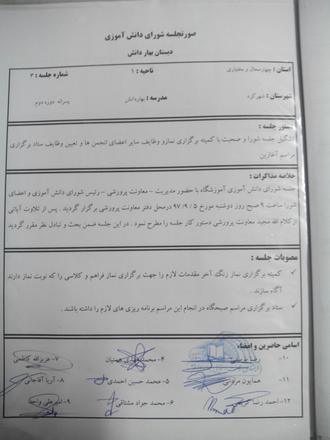 صورتجلسه شورای دانش آموزی
دبستان بهار دانش
استان : چهارمحال و بختیاری ناحیه : ۱ شماره جلسه : ۳
شهرستان : شهرکرد مدرسه : بهاردانش پسرانه دوره دوم
دستور جلسه :
تشکیل جلسه شورا و صحبت با کمیته برگزاری نماز و وظایف سایر اعضای انجمن ها و تعیین وظایف ستاد برگزاری
مراسم آغازین
خلاصه مذاکرات :
جلسه شورای دانش آموزی آموزشگاه با حضور مدیریت – معاونت پرورشی – رئیس شورای دانش آموزی و اعضای
شورا ساعت ۹ صبح روز دوشنبه مورخ ۹۷/۹/۵ درمحل دفتر معاونت پرورشی برگزار گردید . پس از تلاوت آیاتی
ازکلام الله مجید معاونت پرورشی دستور کار جلسه را مطرح نمود . در این جلسه ضمن بحث و تبادل نظر مقرر گردید
مصوبات جلسه :
کمیته برگزاری نماز زنگ آخر مقدمات لازم را جهت برگزاری نماز فراهم و کلاسی را که نوبت نماز دارند
آگاه سازند .
ستاد برگزاری مراسم صبحگاه در انجام این مراسم برنامه ریزی های لازم را داشته باشند .
اسامی حاضرین و امضاء
۱۰- ۴- محمد ۷- عزیزالله
۱۱- همایون مرادی ۵- محمد حسین احمدی ۸- آریا آقاجانی
۱۲- احمد رضا ۶- محمد جواد مشتاقی ۹-